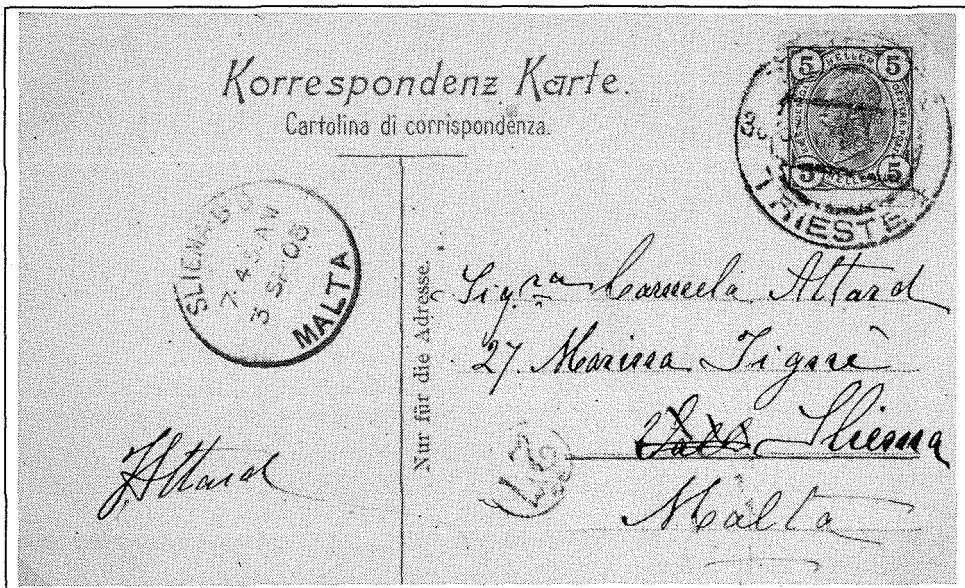 Korrespondenz Karte.
Cartolina di corrispondenza.
5 HELLER 5
5 HELLER 5
TRIESTE
SLIEMA
7.4 AM
3 SP 08
MALTA
Nur für die Adresse.
Sigra Carmela Attard
27. Marina Tignè
Sliema
Malta
J. Attard